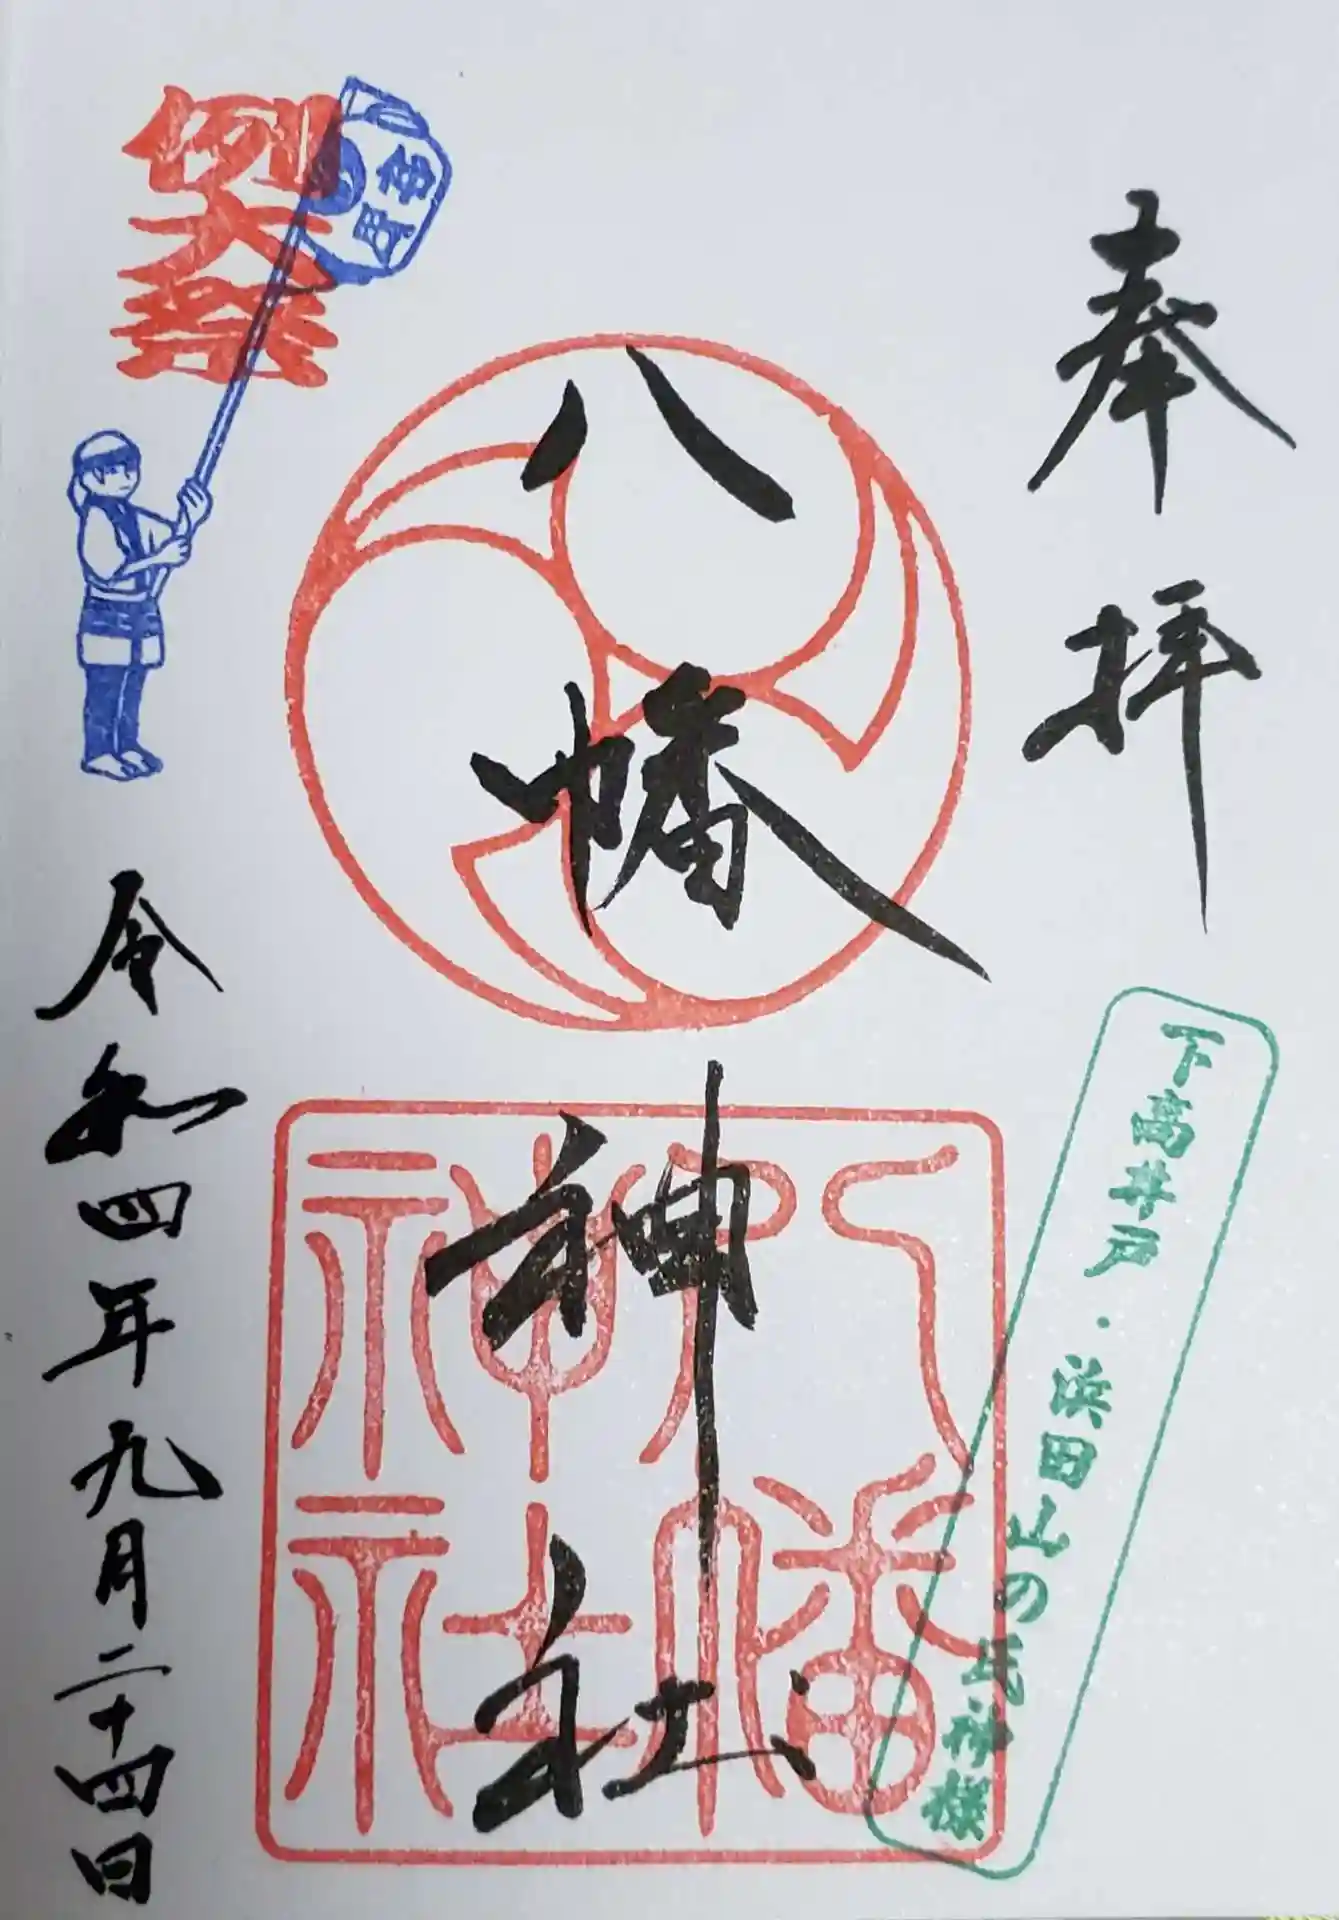 奉拝
下高井戸・浜田山の氏神様
八幡神社
八幡
神社
例大祭
令和四年九月二十四日